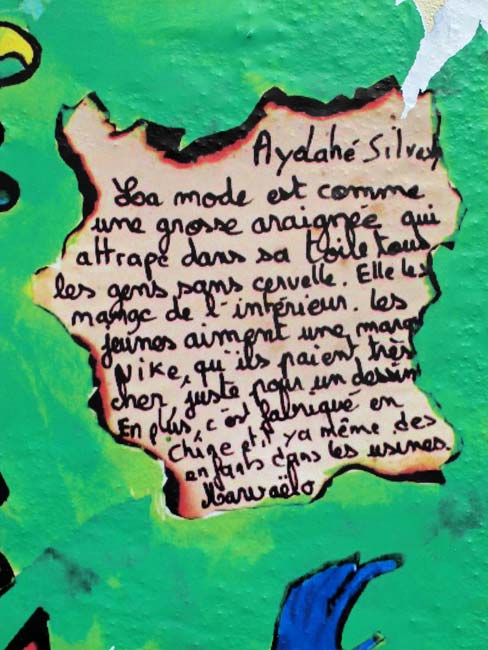 Aydahé Silva
La mode est comme
une grosse araignée qui
attrape dans sa toile tous
les gens sans cervelle. Elle les
mange de l'intérieur. Les
jeunes aiment une marq
Nike, qu'ils paient très
cher juste pour un dessin
En plus, c'est fabriqué en
Chine et il y a même des
enfants dans les usines.